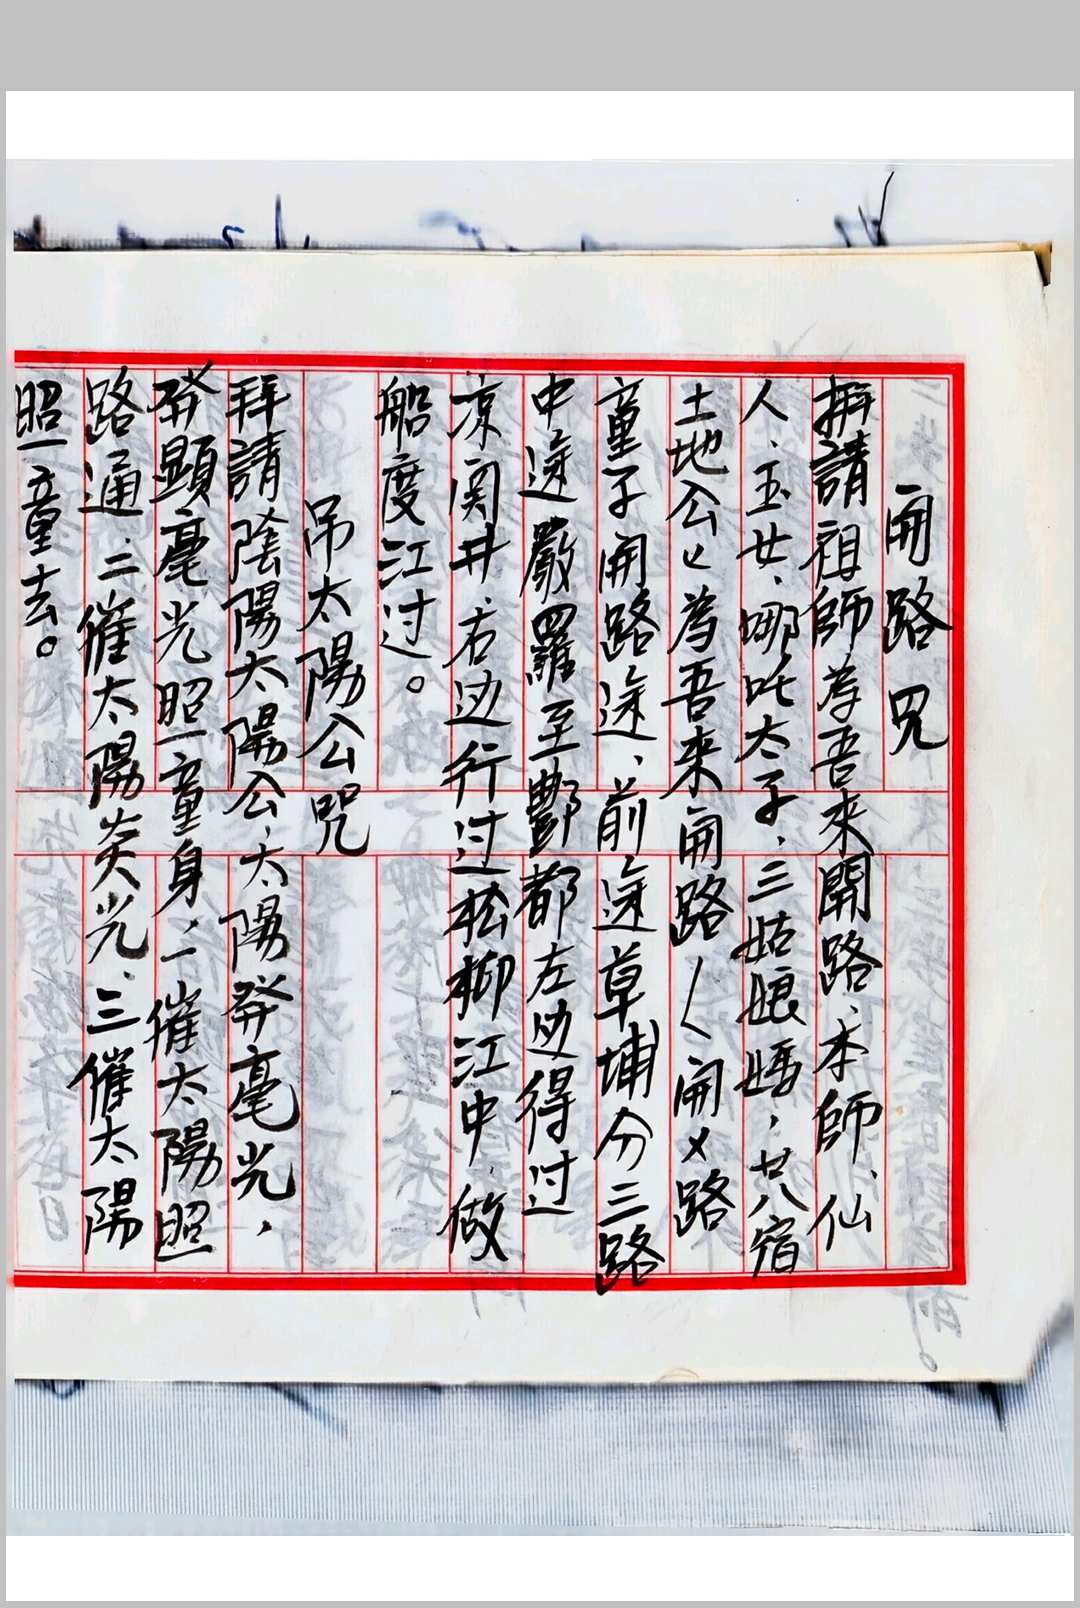 開路咒
拜請祖師為吾來開路、本師、仙
人、玉女、哪吒太子、三姑娘媱、廿八宿
土地公〻為吾來開路〱開㐅路
童子開路途、前途草埔分三路
中途嚴羅至酆都左边得过
凉関井、右边行过松柳江中、做
船度江过。
吊太陽公咒
拜請陰陽太陽公、太陽發毫光，
發顯毫光照童身、一催太陽照
路通、二催太陽炎光、三催太陽
照童去。